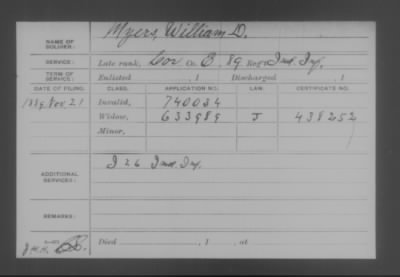 NAME OF SOLDIER: Myers, William D.
SERVICE: Late rank, Cor Co. E, 89 Reg't Ind. Inf.
TERM OF SERVICE: Enlisted , 1 Discharged , 1
DATE OF FILING. CLASS. APPLICATION NO. LAW. CERTIFICATE NO.
1889, Nov. 21 Invalid, 740034
Widow, 633989 J 438252
Minor,
ADDITIONAL SERVICES: I 26 Ind. Inf.
REMARKS:
Died , 1 , at